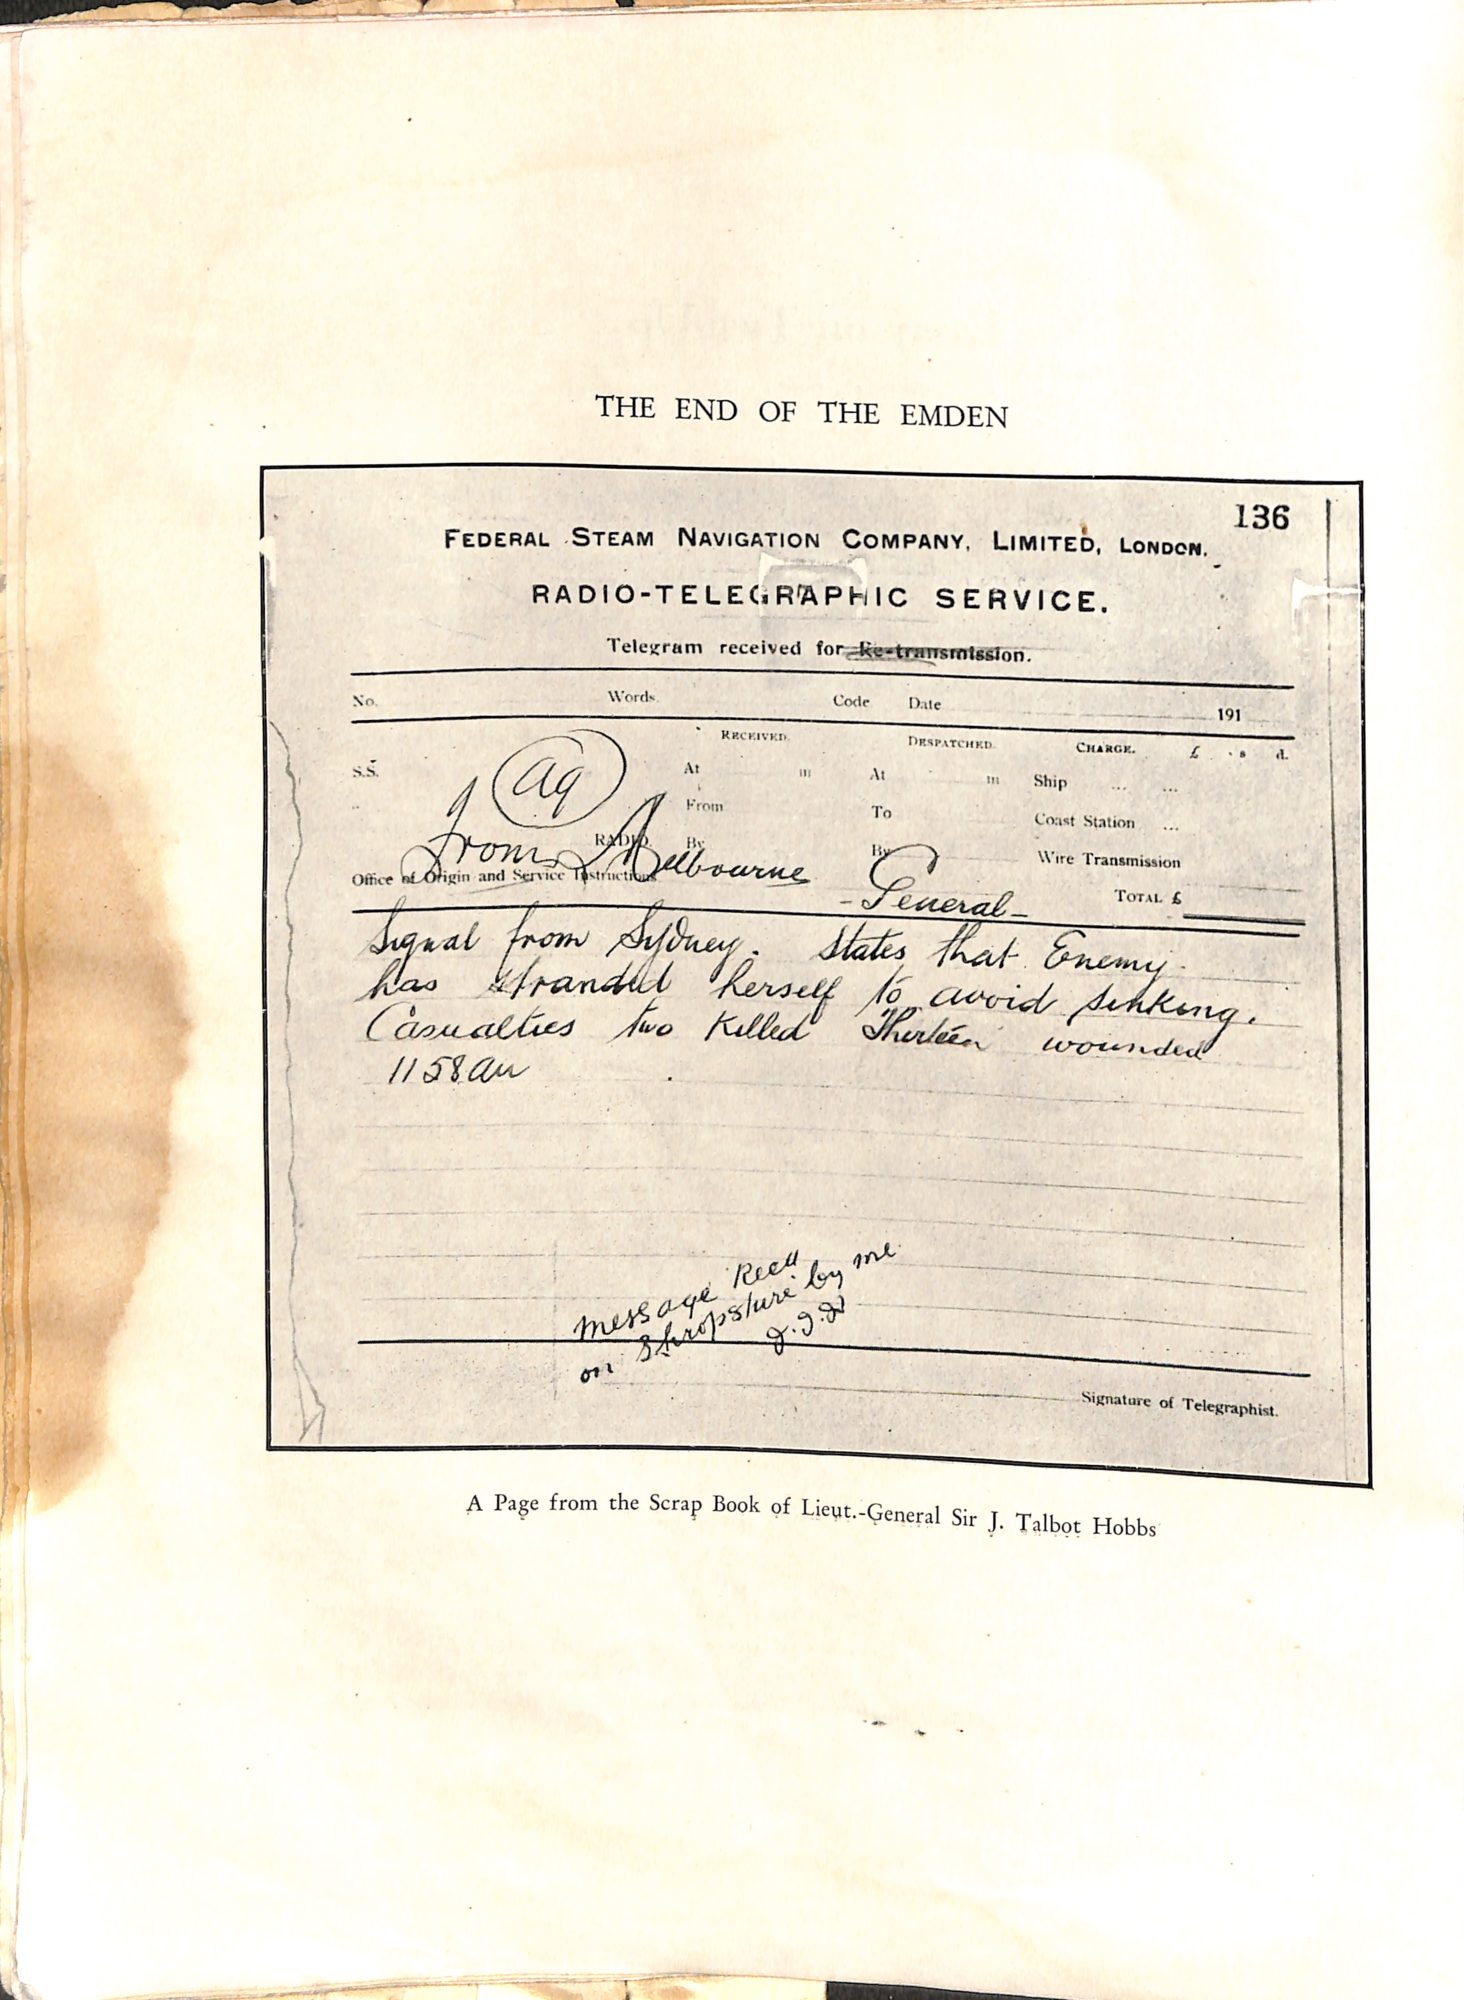 THE END OF THE EMDEN
136
FEDERAL STEAM NAVIGATION COMPANY, LIMITED, LONDON.
RADIO-TELEGRAPHIC SERVICE.
Telegram received for Re-transmission.
No. Words. Code Date 191
RECEIVED. DESPATCHED. CHARGE. £ s d.
S.S. At m At m Ship ... ...
From To Coast Station ...
RADIO. By By Wire Transmission
Office of Origin and Service Instructions TOTAL £
From Melbourne
- General -
Signal from Sydney. States that Enemy
has stranded herself to avoid sinking.
Casualties two killed Thirteen wounded
1158 am
message Recd
on Shropshire by me
Signature of Telegraphist.
A Page from the Scrap Book of Lieut.-General Sir J. Talbot Hobbs